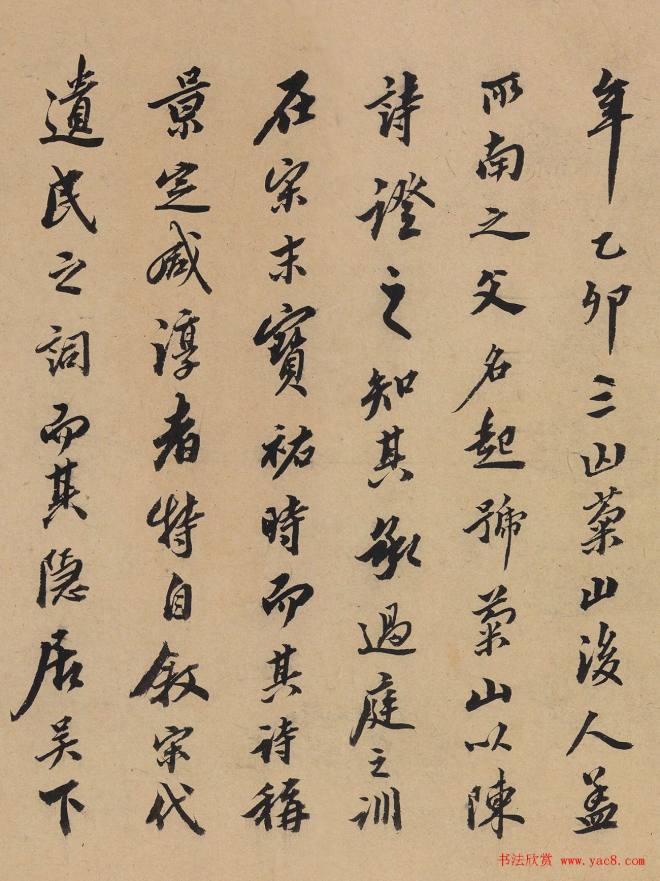 年乙卯三山菊山後人蓋
所南之父名起號菊山以陳
詩證之知其承過庭之訓
在宋末寶祐時而其詩稱
景定咸淳者特自叙宋代
遺民之詞而其隱居吴下
书法欣赏 www.yac8.com